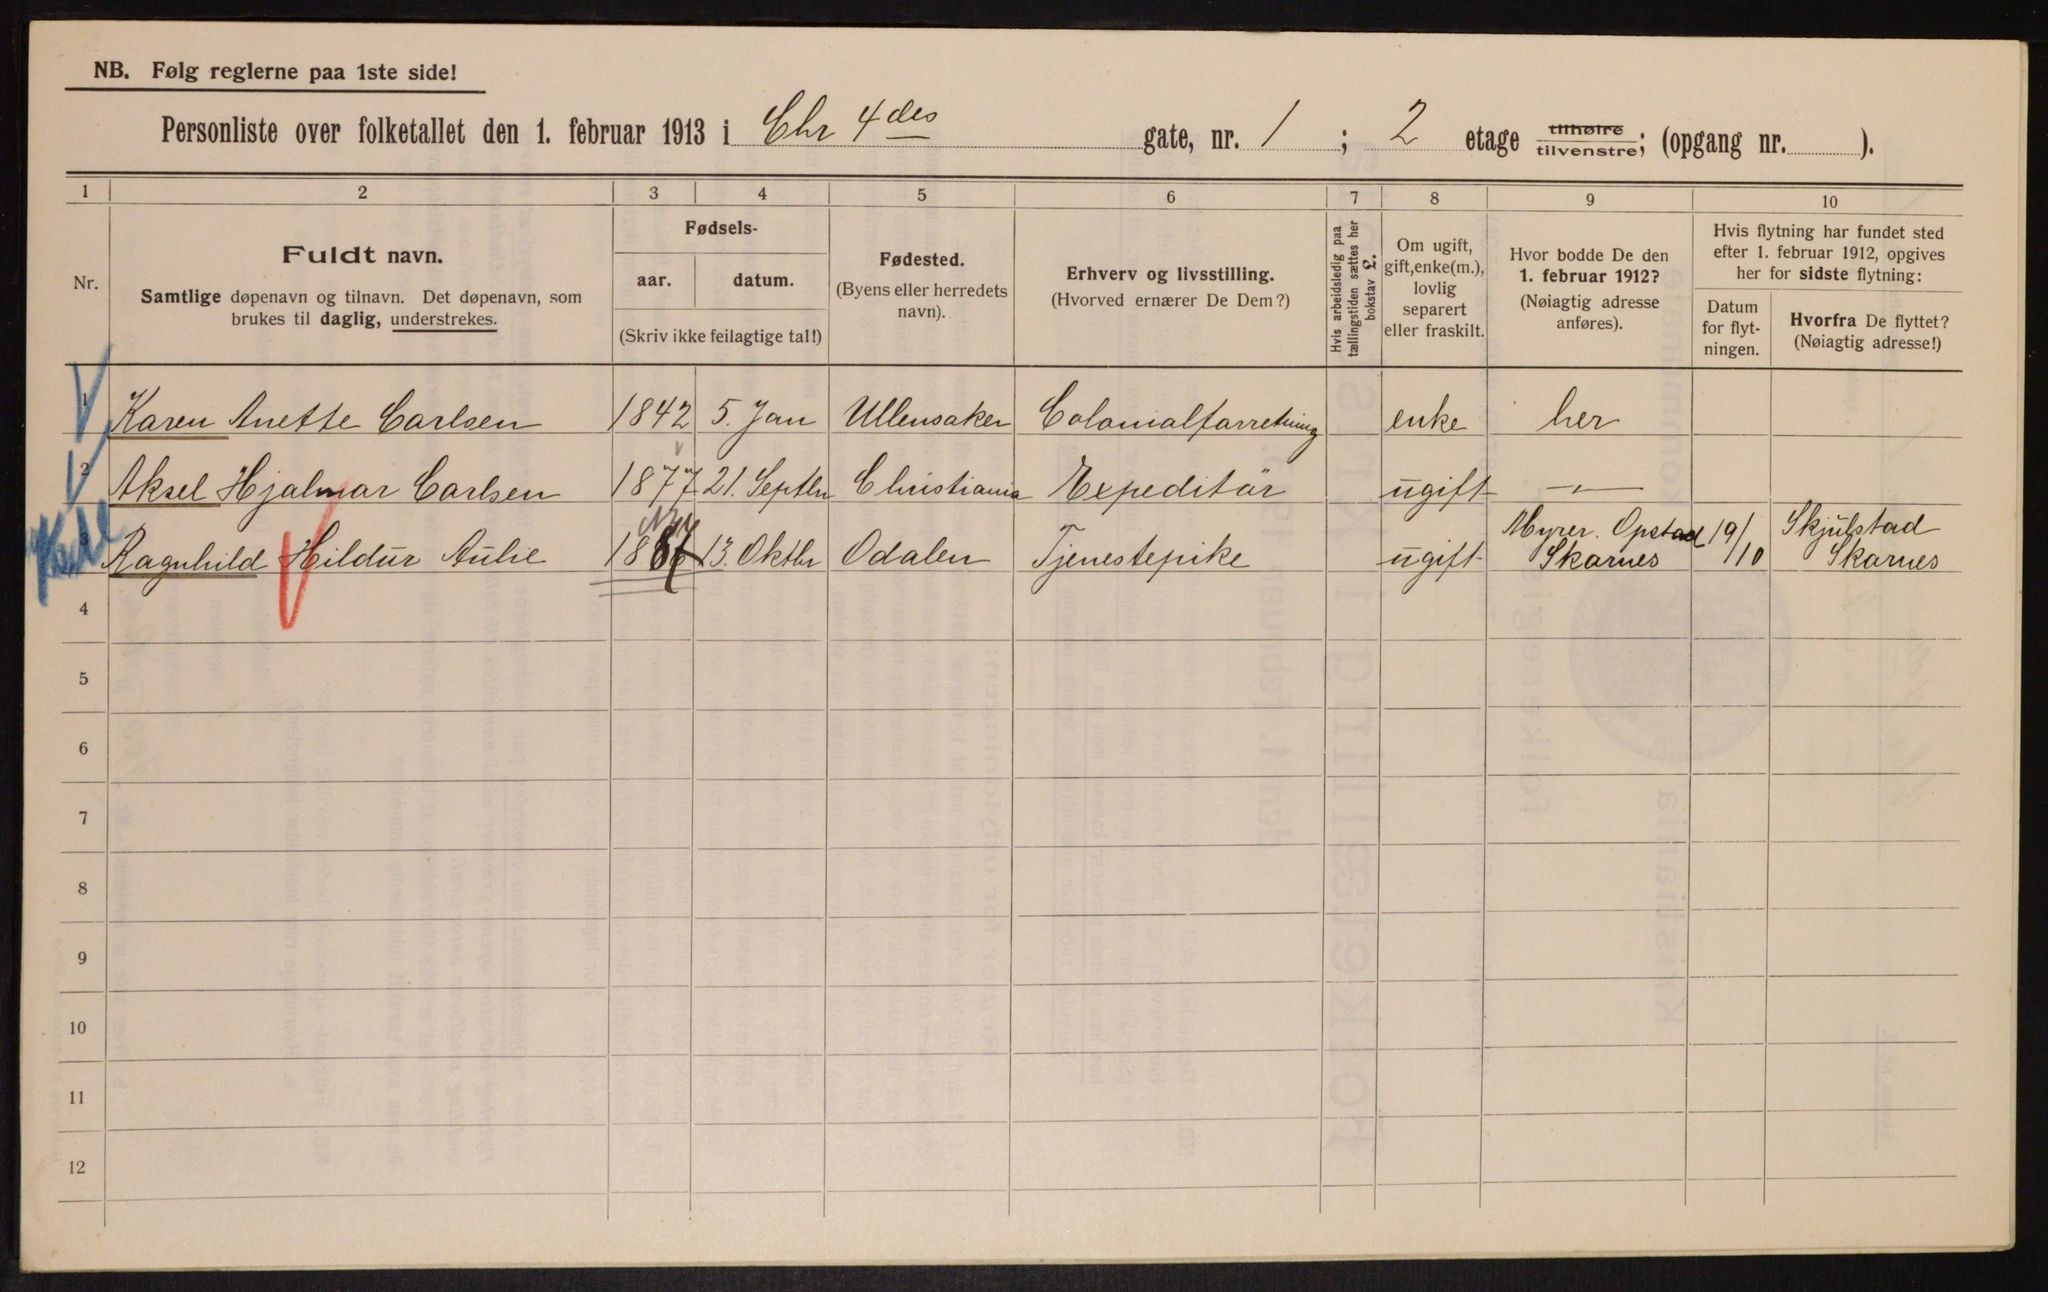 NB. Følg reglerne paa 1ste side!
Personliste over folketallet den 1. februar 1913 i Chr 4des gate, nr. 1 ; 2 etage tilhøire tilvenstre; (opgang nr. ).
1 2 3 4 5 6 7 8 9 10
Nr.
Fuldt navn.
Samtlige døpenavn og tilnavn. Det døpenavn, som
brukes til daglig, understrekes.
Fødsels-
aar. datum.
(Skriv ikke feilagtige tal!)
Fødested.
(Byens eller herredets
navn).
Erhverv og livsstilling.
(Hvorved ernærer De Dem?)
Hvis arbeidsledig paa
tællingstiden sættes her
bokstav L.
Om ugift,
gift, enke(m.),
lovlig
separert
eller fraskilt.
Hvor bodde De den
1. februar 1912?
(Nøiagtig adresse
anføres).
Hvis flytning har fundet sted
efter 1. februar 1912, opgives
her for sidste flytning:
Datum
for flyt-
ningen.
Hvorfra De flyttet?
(Nøiagtig adresse!)
1 Karen Anette Carlsen 1842 5. Jan Ullensaker Colonialforretning enke her
2 Aksel Hjalmar Carlsen 1877 21. Septbr Christiania Expeditør ugift —"—
3 Ragnhild Hildur Aulie 13. Oktbr Odalen Tjenestepike ugift Myrer. Opstad Skarnes 19/10 Skjulstad Skarnes
4
5
6
7
8
9
10
11
12